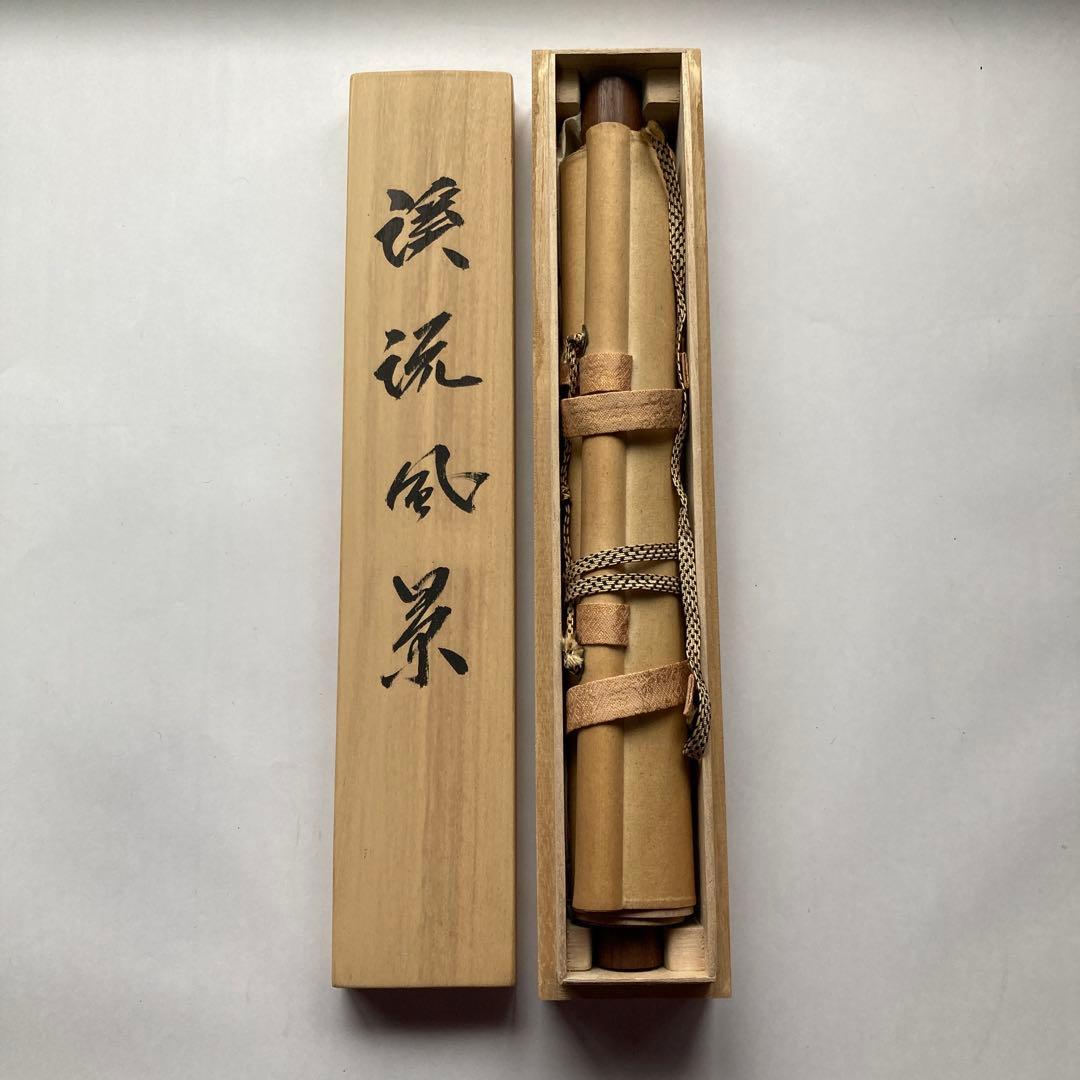 渓流風景